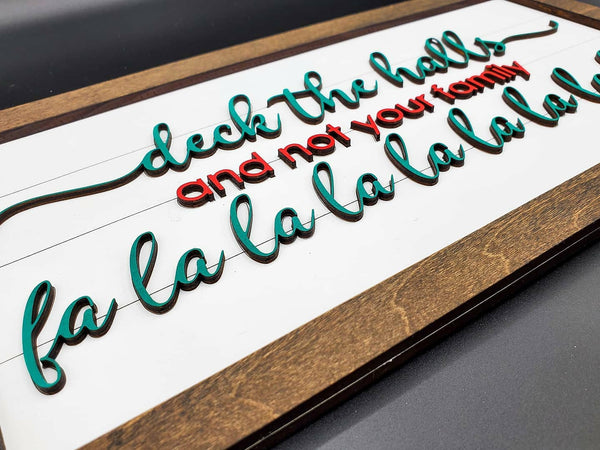 deck the halls
and not your family
fa la la la la la la la la